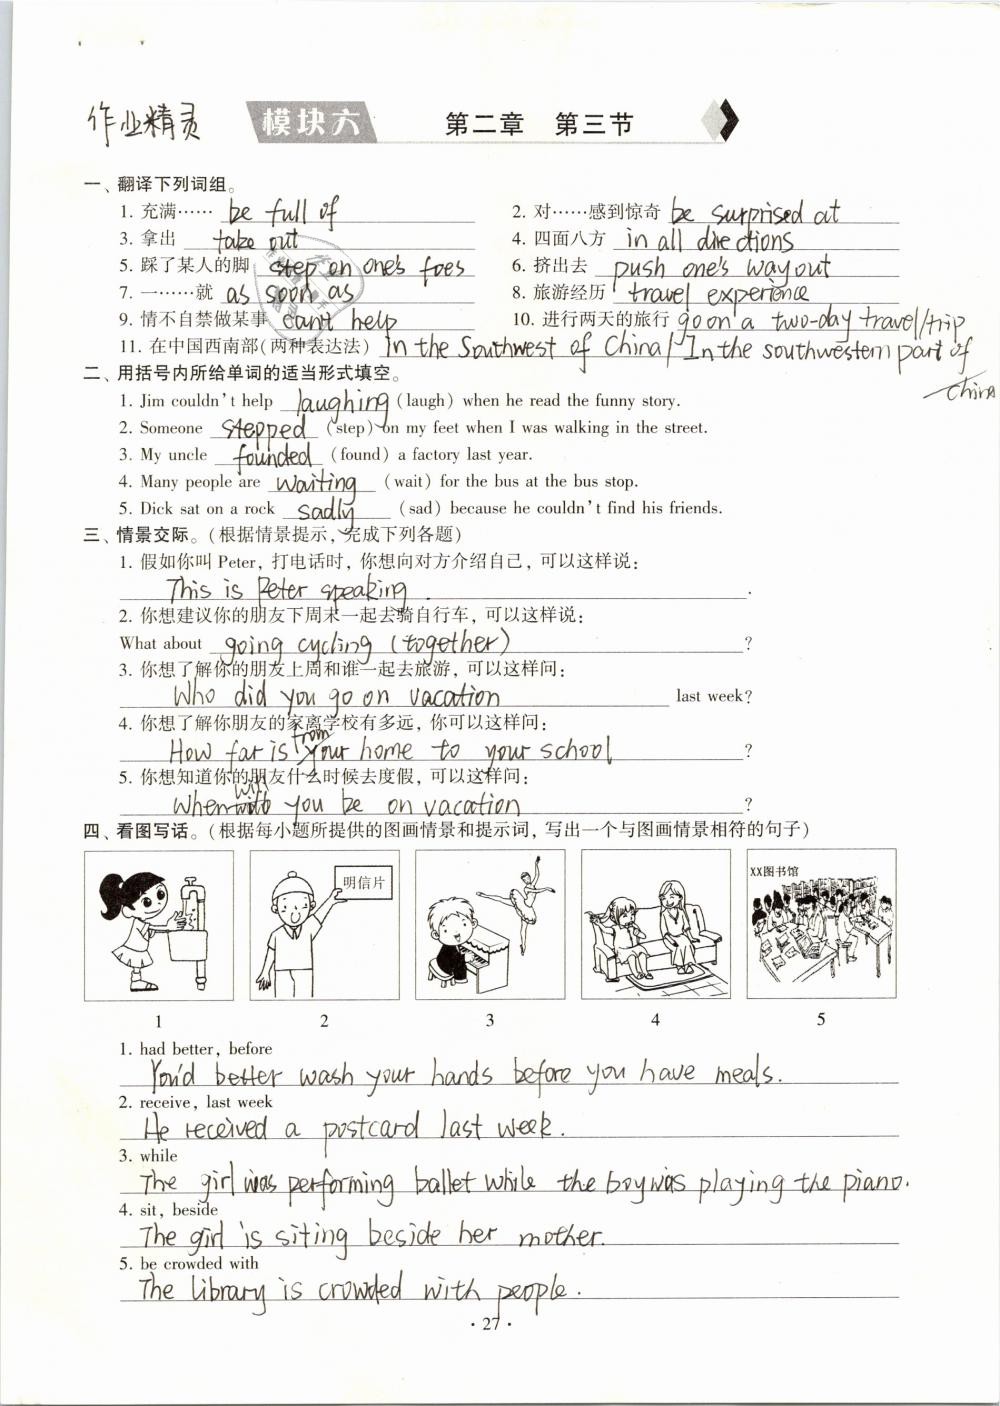 作业精灵 模块六 第二章 第三节
一、翻译下列词组。
1. 充满…… be full of 2. 对……感到惊奇 be surprised at
3. 拿出 take out 4. 四面八方 in all directions
5. 踩了某人的脚 step on one's foes 6. 挤出去 push one's way out
7. 一……就 as soon as 8. 旅游经历 travel experience
9. 情不自禁做某事 can't help 10. 进行两天的旅行 go on a two-day travel/trip
11. 在中国西南部(两种表达法) In the Southwest of China / In the southwestern part of
China
二、用括号内所给单词的适当形式填空。
1. Jim couldn't help laughing (laugh) when he read the funny story.
2. Someone stepped (step) on my feet when I was walking in the street.
3. My uncle founded (found) a factory last year.
4. Many people are waiting (wait) for the bus at the bus stop.
5. Dick sat on a rock sadly (sad) because he couldn't find his friends.
三、情景交际。(根据情景提示,完成下列各题)
1. 假如你叫 Peter, 打电话时, 你想向对方介绍自己, 可以这样说:
This is Peter speaking.
2. 你想建议你的朋友下周末一起去骑自行车, 可以这样说:
What about going cycling (together) ?
3. 你想了解你的朋友上周和谁一起去旅游, 可以这样问:
Who did you go on vacation last week?
4. 你想了解你朋友的家离学校有多远, 你可以这样问:
from
How far is your home to your school ?
5. 你想知道你的朋友什么时候去度假, 可以这样问:
will
When you be on vacation ?
四、看图写话。(根据每小题所提供的图画情景和提示词, 写出一个与图画情景相符的句子)
明信片
XX图书馆
1 2 3 4 5
1. had better, before
You'd better wash your hands before you have meals.
2. receive, last week
He received a postcard last week.
3. while
The girl was performing ballet while the boy was playing the piano.
4. sit, beside
The girl is siting beside her mother.
5. be crowded with
The library is crowded with people.
· 27 ·